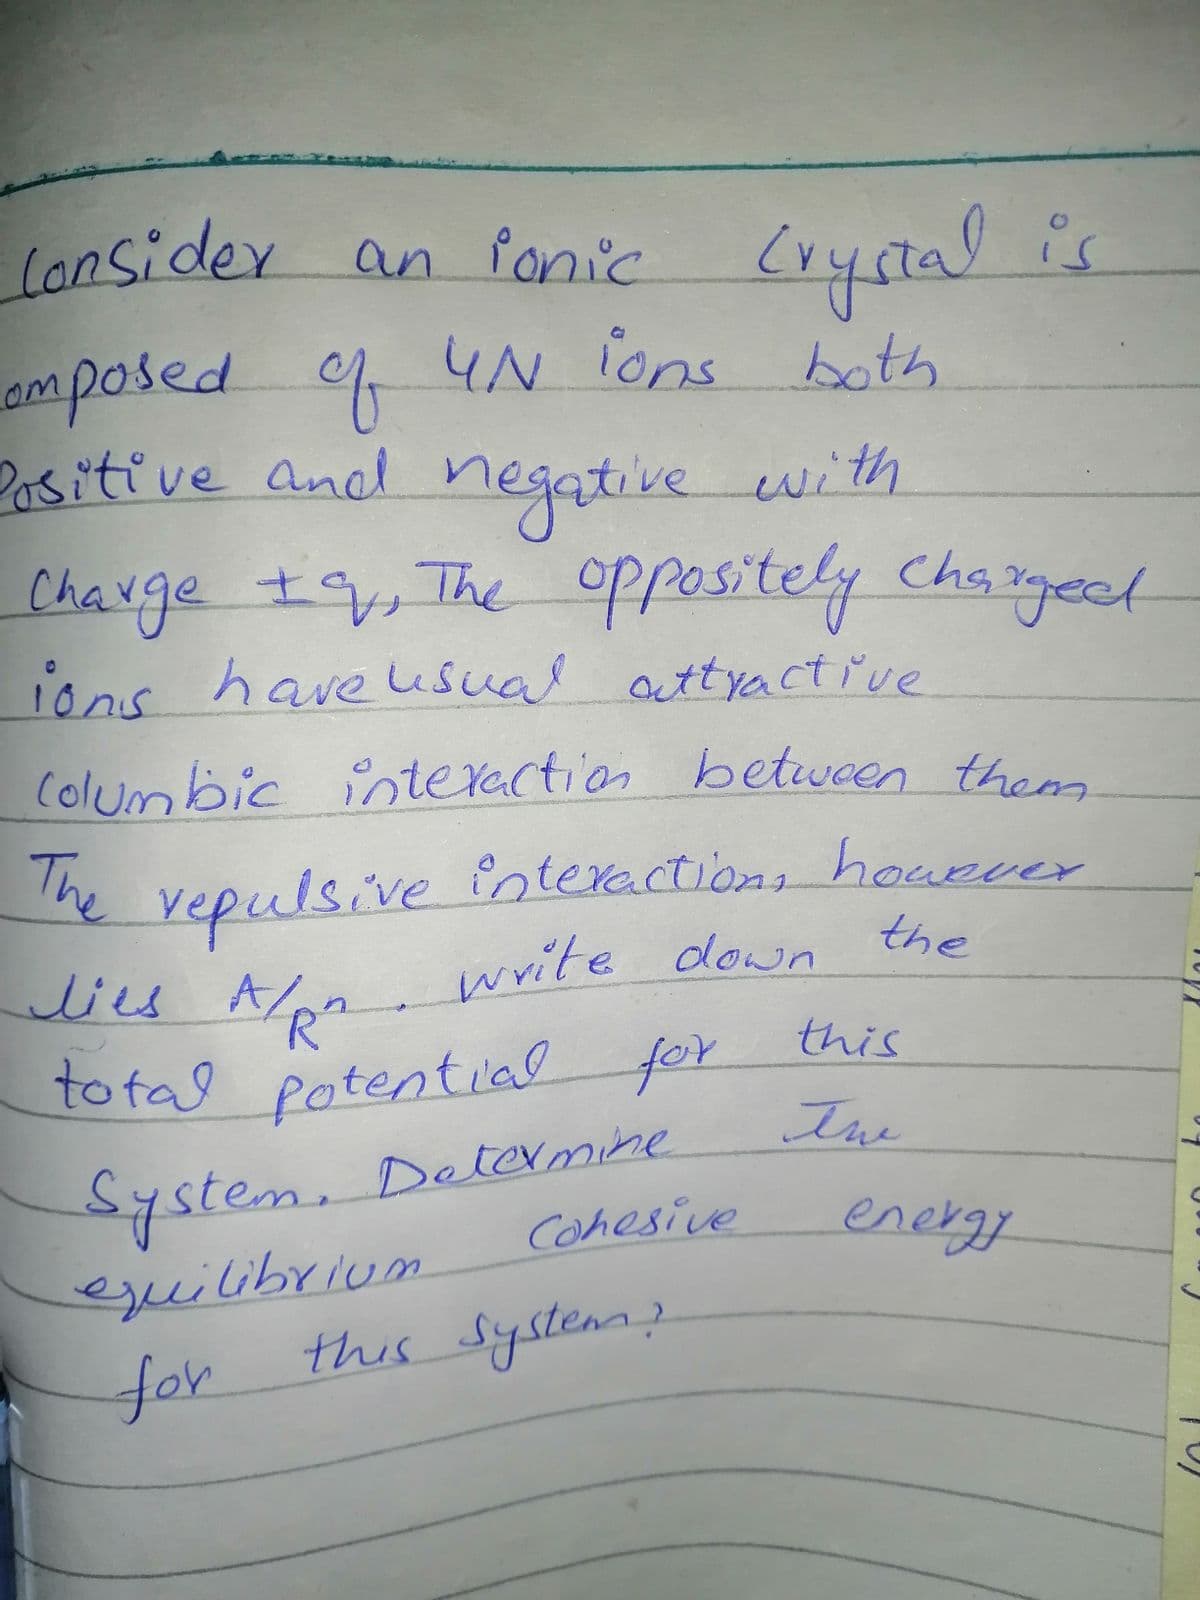 Consider an ionic Crystal is
omposed of 4N ions both
Positive and negative with
Charge ±q, The oppositely charged
ions have usual attractive
Columbic interaction between them
The repulsive interaction, however
lies A/Rⁿ. write down the
total potential for this
System. Determine The
equilibrium cohesive energy
for this system?